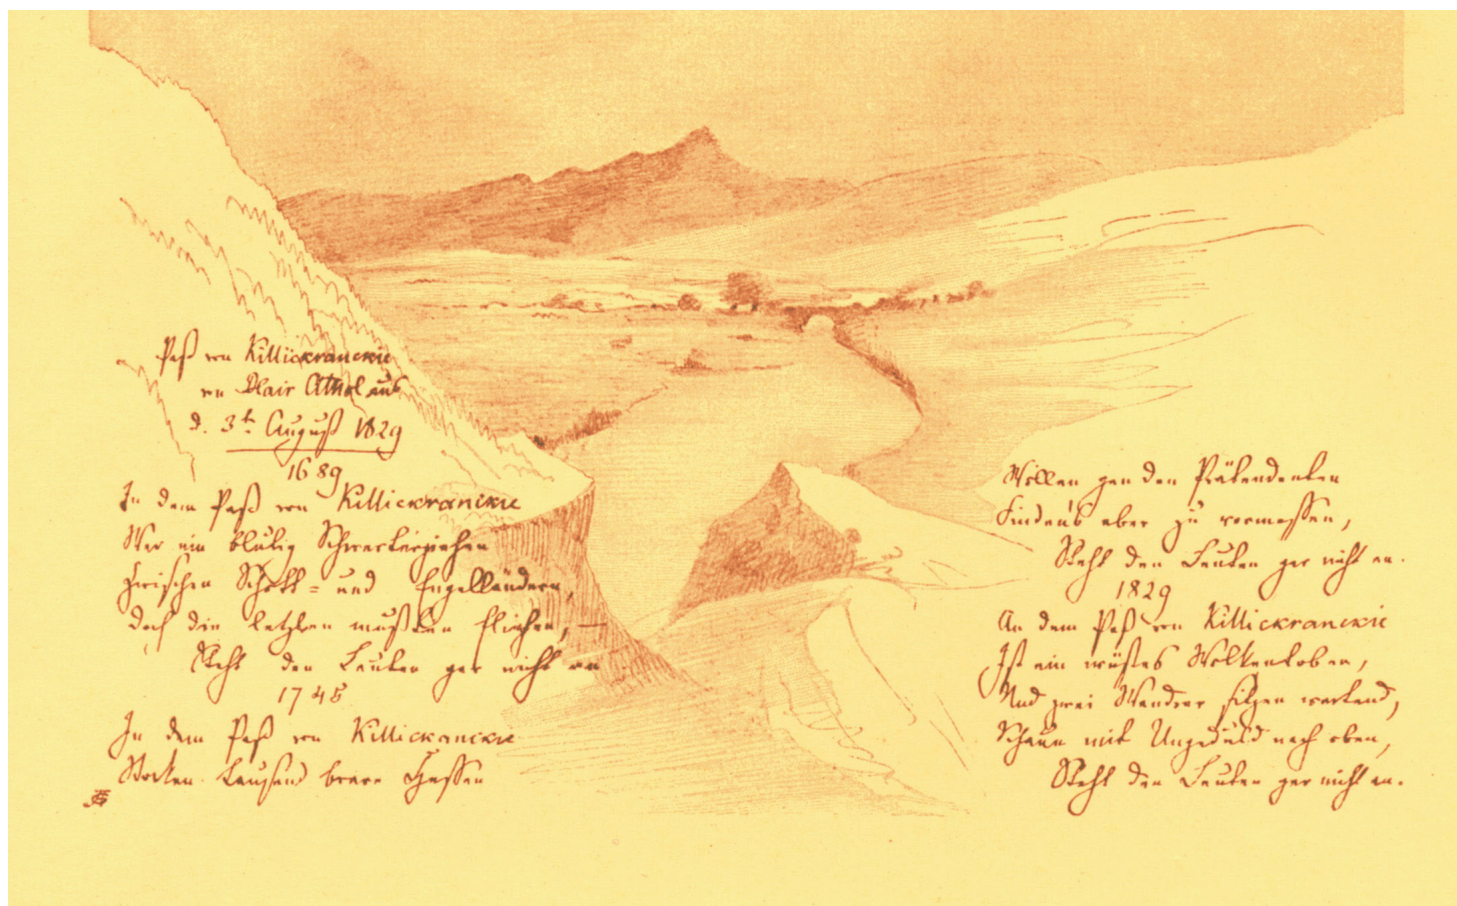 Paß von Killickranckie
von Blair Athol aus
d. 3t. August 1829
1689
In dem Paß von Killickranckie
War ein blutig Schwerterziehen
Zwischen Schott= und Engelländern,
Doch die letzten mußten fliehen, —
Steht den Leuten gar nicht an
1745
In dem Paß von Killickanckie
Stocken tausend brave Hessen
Wollen gen den Prätendenten
Finden's aber zu vermessen,
Steht den Leuten gar nicht an.
1829
An dem Paß von Killickranckie
Ist ein wüstes Wolkentoben,
Und zwei Wandrer sitzen wartend,
Schaun mit Ungeduld nach oben,
Steht den Leuten gar nicht an.